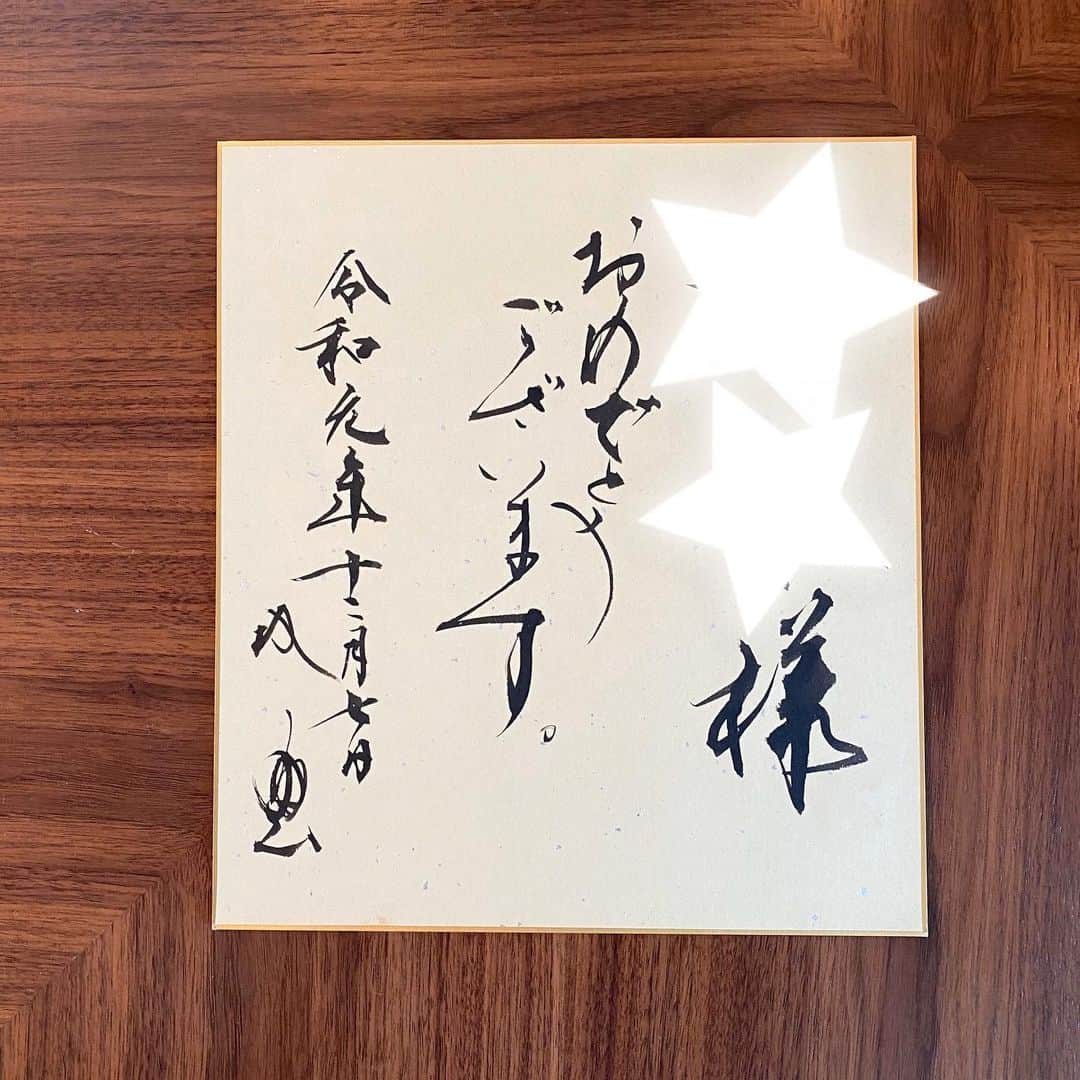 様
おめでとう
ございます。
令和元年十二月七日